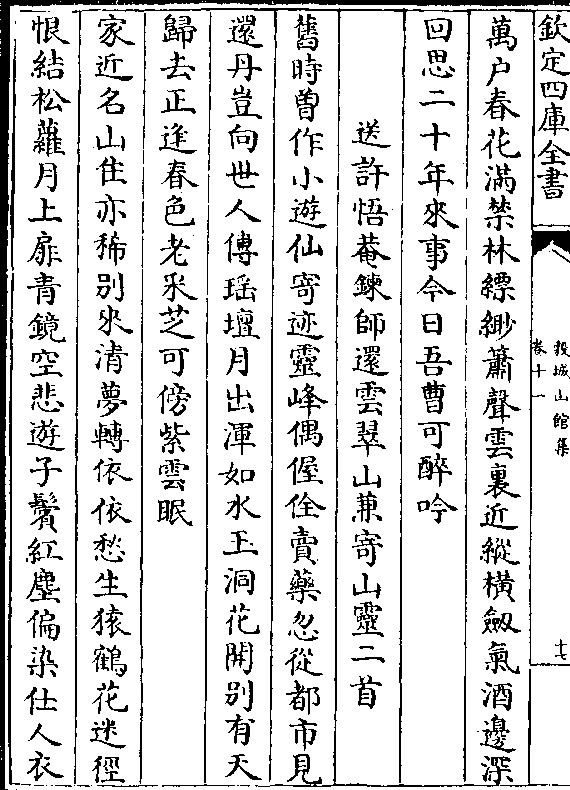 欽定四庫全書
穀城山館集
卷十一
十七
萬户春花滿禁林縹緲簫聲雲裏近縱横劔氣酒邊深
回思二十年來事今日吾曹可醉吟
送許悟菴鍊師還雲翠山兼寄山靈二首
舊時曽作小遊仙寄迹靈峰偶偓佺賣藥忽從都市見
還丹豈向世人傳瑶壇月出渾如水玉洞花開别有天
歸去正逢春色老采芝可傍紫雲眠
家近名山住亦稀别來清夢轉依依愁生猿鶴花迷徑
恨結松蘿月上扉青鏡空悲遊子鬢紅塵偏染仕人衣